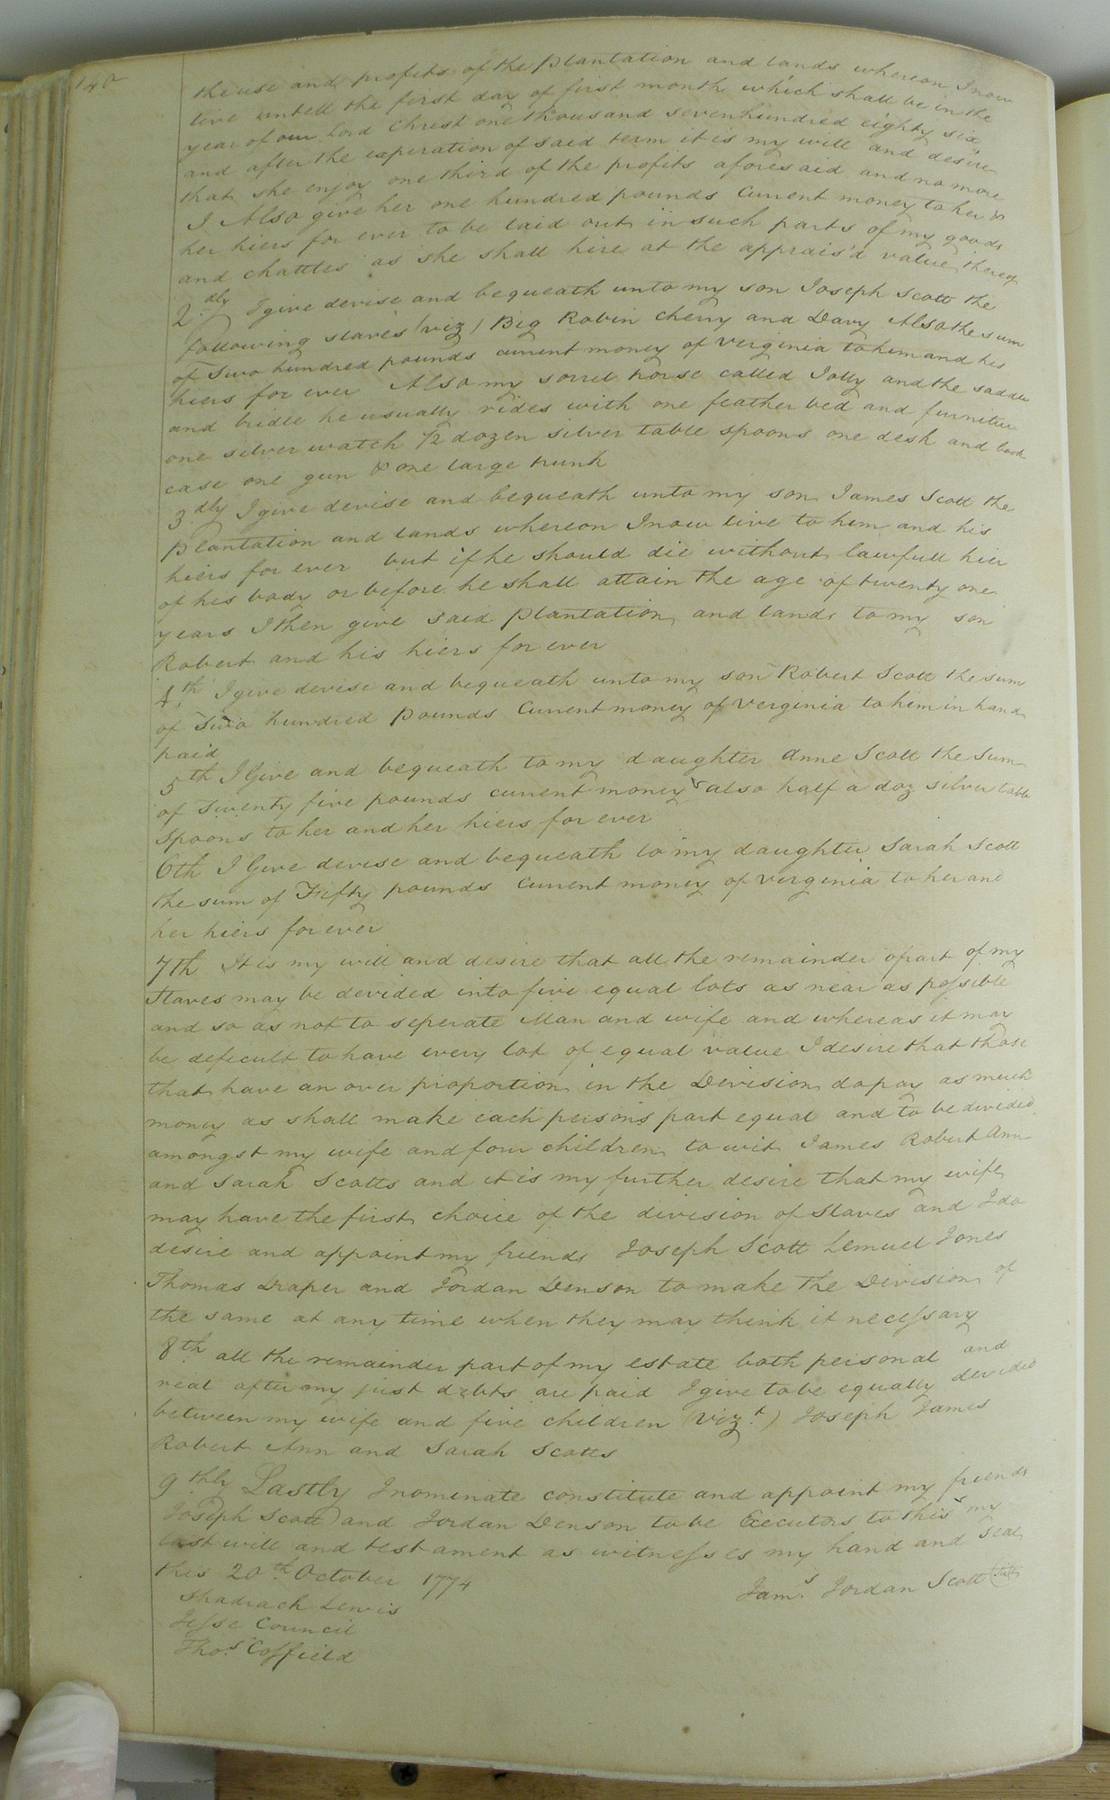 140
the use and profits of the plantation and lands whereon I now
live untill the first day of first month which shall be in the
year of our Lord Christ one thousand sevenhundred eighty six
and after the experation of said term it is my will and desire
that she enjoy one third of the profits aforesaid and no more
I Also give her one hundred pounds Current money to her &
her hiers for ever to be laid out in such parts of my goods
and chattles as she shall hire at the apprais'd value thereof
2dly I give devise and bequeath unto my son Joseph Scott the
following slaves (viz) Big Robin Cherry and Davy Also the sum
of Two hundred pounds current money of Verginia to him and his
hiers for ever Also my sorrel horse called Jolly and the saddle
and bridle he usually rides with one feather bed and furniture
one silver watch 1/2 dozen silver table spoons one desk and book
case one gun & one large trunk
3dly I give devise and bequeath unto my son James Scott the
plantation and lands whereon I now live to him and his
hiers for ever but if he should die without lawfull hier
of his body or before he shall attain the age of twenty one
years I then give said plantation and lands to my son
Robert and his hiers for ever
4th I give devise and bequeath unto my son Robert Scott the sum
of Two hundred pounds Current money of Verginia to him in hand
paid
5th I Give and bequeath to my daughter Anne Scott the Sum
of Twenty five pounds current money & also half a doz silver table
Spoons to her and her hiers for ever
6th I Give devise and bequeath to my daughter Sarah Scott
the sum of Fifty pounds Current money of Verginia to her and
her hiers forever
7th It is my will and desire that all the remainder part of my
Slaves may be devided into five equal lots as near as possible
and so as not to seperate Man and wife and whereas it may
be deficult to have every lot of equal value I desire that those
that have an over proportion in the Division do pay as much
money as shall make each persons part equal and to be devided
amongst my wife and four children to wit James Robert Ann
and Sarah Scotts and it is my further desire that my wife
may have the first choice of the division of Slaves and I do
desire and appoint my friends Joseph Scott Lemuel Jones
Thomas Draper and Jordan Denson to make the Division of
the same at any time when they may think it necessary
8th all the remainder part of my estate both personal and
real after my just debts are paid I give to be equally devided
between my wife and five children (vizt) Joseph James
Robert Ann and Sarah Scotts
9thly Lastly I nominate constitute and appoint my friends
Joseph Scott and Jordan Denson to be Executors to this my
last will and testament as witnesses my hand and seal
this 20th October 1774
Jams Jordan Scott (seal)
Shadrach Lewis
Jesse Council
Thos Coffield